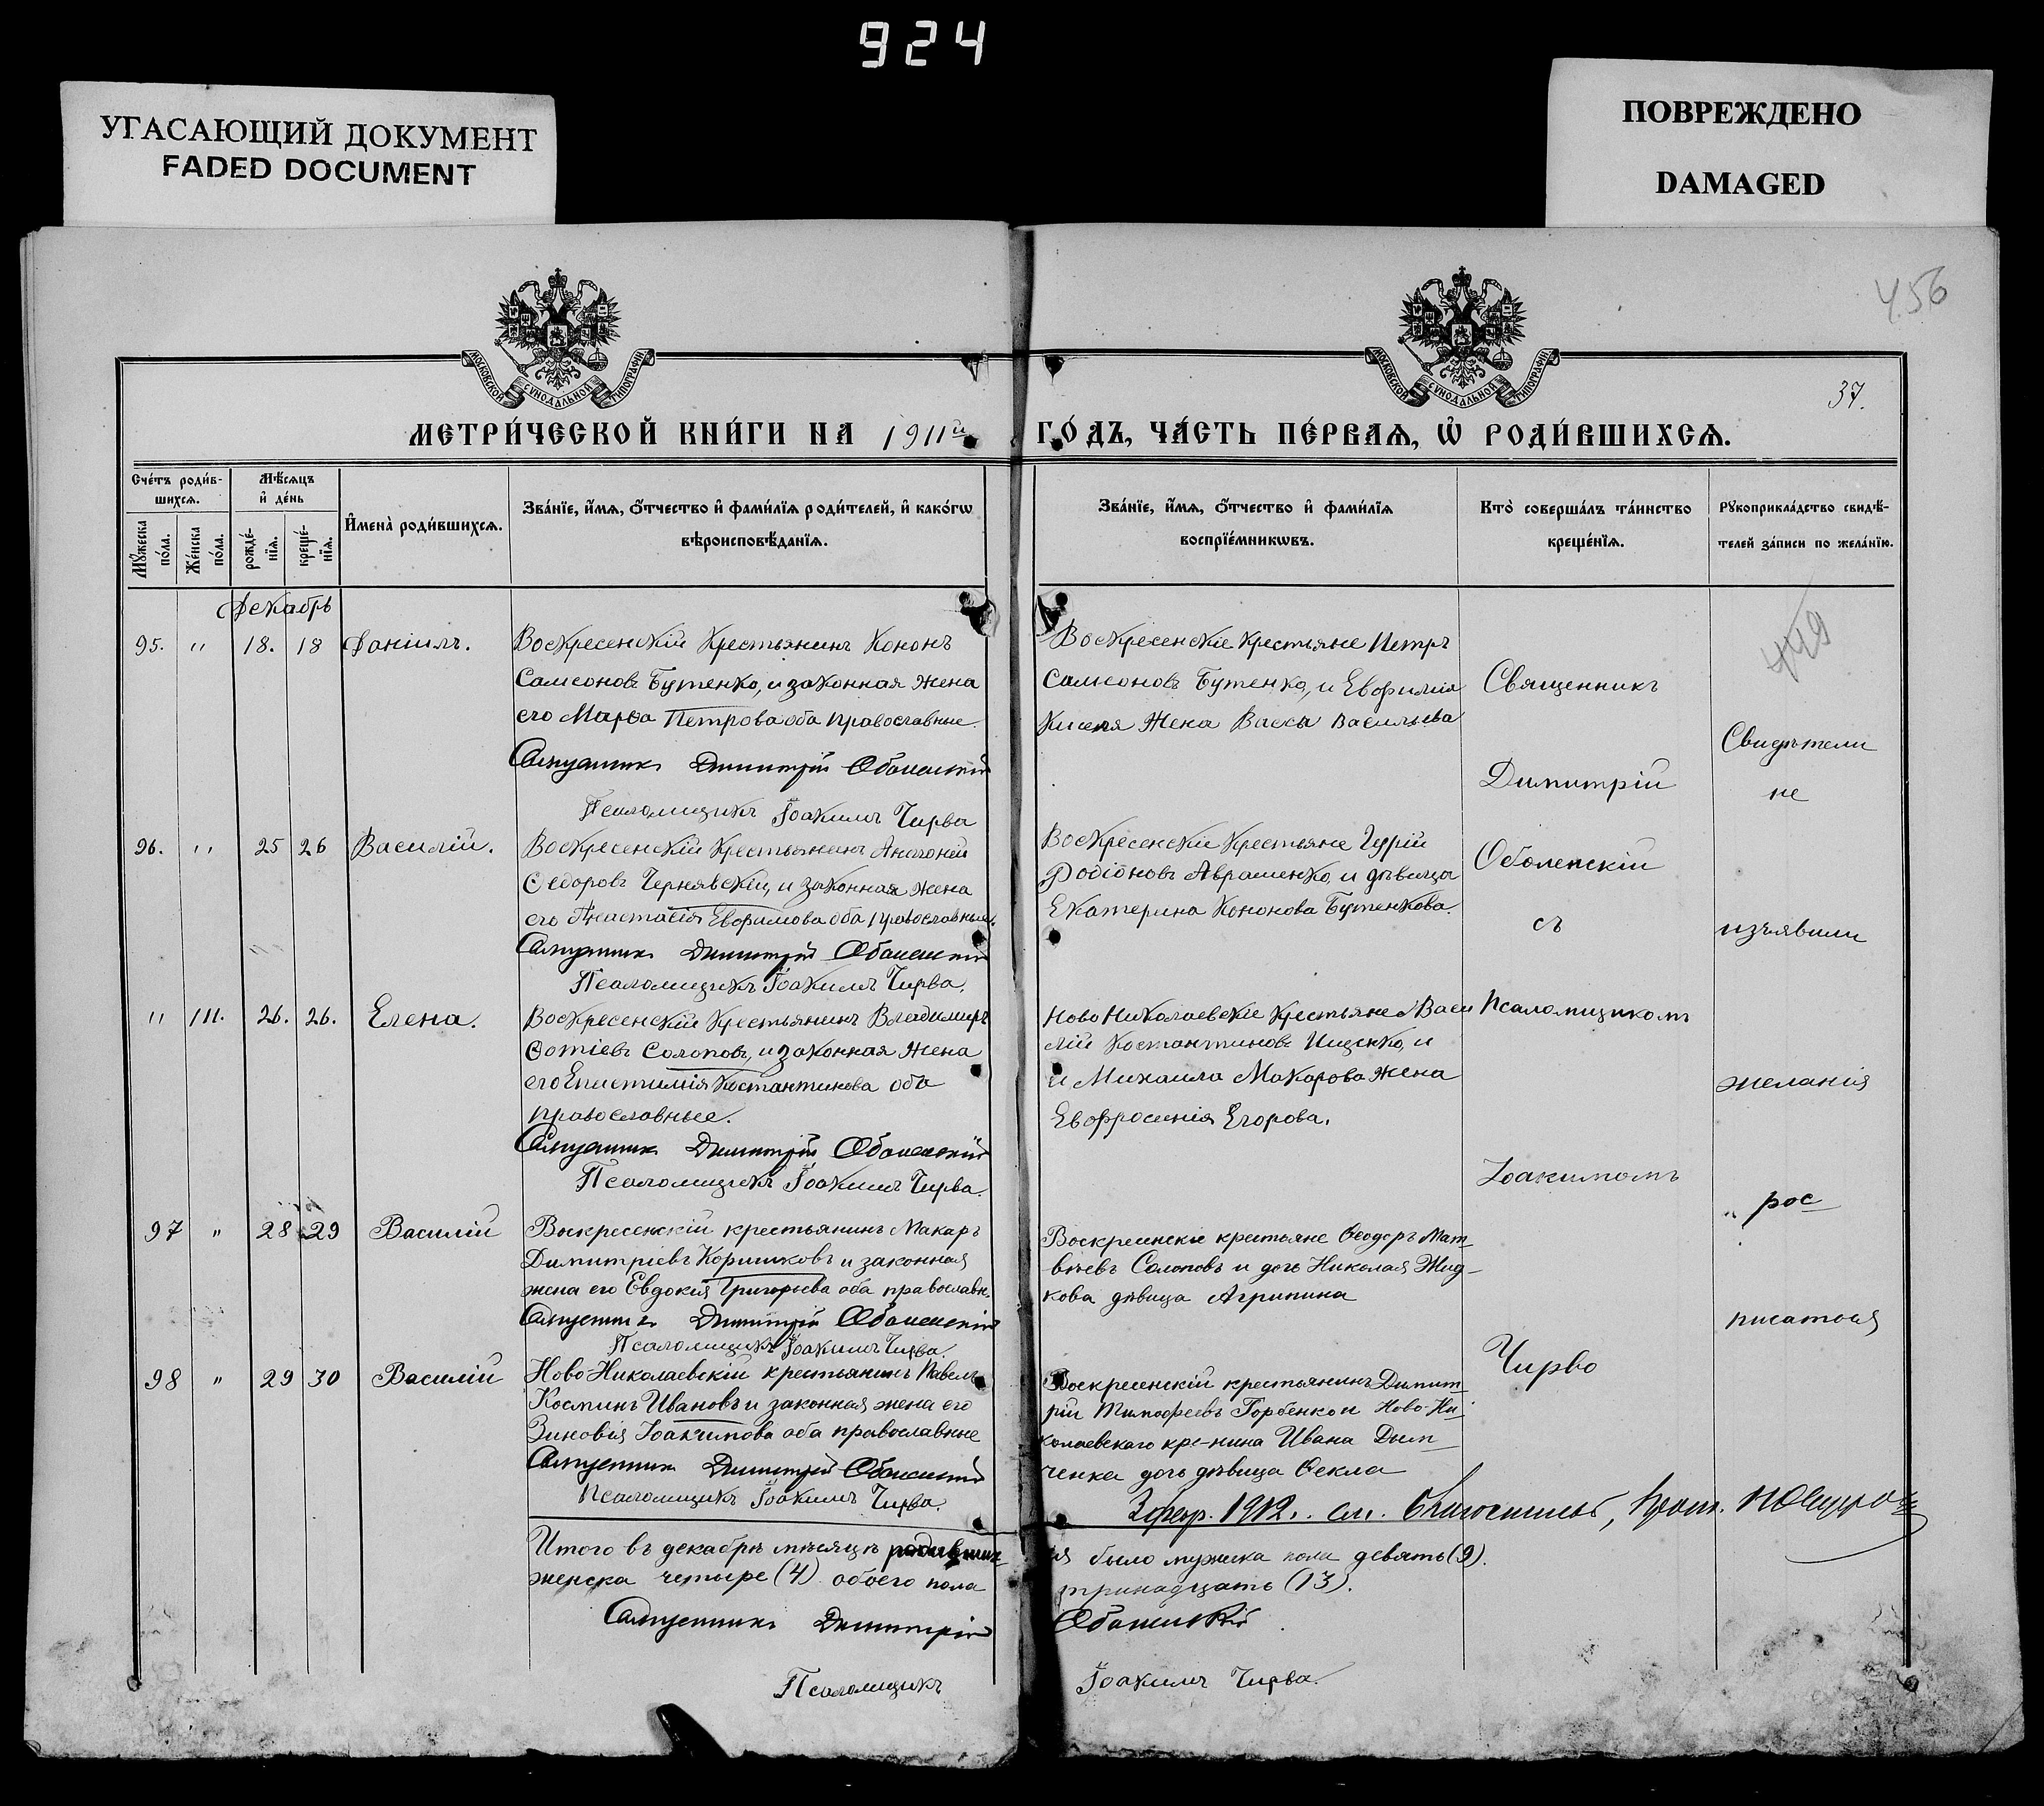 924
УГАСАЮЩИЙ ДОКУМЕНТ
FADED DOCUMENT
ПОВРЕЖДЕНО
DAMAGED
456
37.
МОСКОВСКОЙ СУНОДАЛЬНОЙ ТИПОГРАФІИ
МОСКОВСКОЙ СУНОДАЛЬНОЙ ТИПОГРАФІИ
МЕТРИ́ЧЕСКОЙ КНИ́ГИ НА 1911й ГО́ДЪ, ЧА́СТЬ ПЕ́РВАѦ, Ѡ РОДИ́ВШИХСѦ.
Сче́тъ роди́в-
шихсѧ.
Мѣсѧцъ
и де́нь
Мꙋжеска
по́ла.
Же́нска
по́ла.
рожде́-
нїѧ.
креще́-
нїѧ.
Имена̀ роди́вшихсѧ.
Зва́нїе, и́мѧ, о́тчество и фами́лїѧ роди́телей, и како́гѡ
вѣроисповѣ́данїѧ.
Зва́нїе, и́мѧ, о́тчество и фами́лїѧ
воспрїе́мникѡвъ.
Кто̀ соверша́лъ та́инство
креще́нїѧ.
Рꙋкоприкла́дство свидѣ́-
телей за́писи по жела́нїю.
Декабрь
95. " 18. 18 Даніилъ.
Воскресенскій Крестьянинъ Кононъ
Самсоновъ Бутенко, и законная жена
его Марѳа Петрова оба православные
Священникъ Димитрій Оболенскій
Псаломщикъ Іоакимъ Чирва
Воскресенскіе крестьяне Петръ
Самсоновъ Бутенко, и Евфимія
жена Васильева
96. " 25 26 Василій.
Воскресенскій Крестьянинъ Антоній
Ѳедоровъ Чернявскій, и законная жена
его Анастасія Евфимова оба православные.
Священникъ Димитрій Оболенскій
Псаломщикъ Іоакимъ Чирва.
Воскресенскіе Крестьяне Гурій
Родіоновъ Авраменко, и дѣвица
Екатерина Кононова Бутенкова.
" 111. 26. 26. Елена.
Воскресенскій Крестьянинъ Владиміръ
Фотіевъ Солоповъ, и законная жена
его Епистимія Костантинова оба
православные.
Священникъ Димитрій Оболенскій
Псаломщикъ Іоакимъ Чирва.
Ново Николаевскіе крестьяне Васи
лій Костантиновъ Ищенко, и
и Михаила Макарова жена
Евфросинія Егорова.
97 " 28 29 Василій
Воскресенскій крестьянинъ Макаръ
Димитріевъ и законная
жена его Евдокія Григорьева оба православн.
Священникъ Димитрій Оболенскій
Псаломщикъ Іоакимъ Чирва.
Воскресенскіе крестьяне Ѳеодоръ Мат-
вѣевъ Солоповъ и дочь Николая Жид-
кова дѣвица Агрипина
98 " 29 30 Василій
Ново-Николаевскій крестьянинъ Павелъ
Косминъ Ивановъ и законная жена его
Зиновія Іоакимова оба православные
Священникъ Димитрій Оболенскій
Псаломщикъ Іоакимъ Чирва.
Воскресенскій крестьянинъ Димит-
рій Тимофеевъ Горбенко и Ново-Ни-
колаевскаго кре-нина Ивана Дим
ченка дочь дѣвица Ѳекла
Священникъ
Димитрій
Оболенскій
съ
Псаломщикомъ
Іоакимомъ
Чирво
Свидѣтели
не
изъявили
желанія
рос
писаться
1912.
Итого въ декабрѣ мѣсяцѣ родивших
ся было мужска пола девять (9).
женска четыре (4) обоего пола
тринадцать (13).
Священникъ Димитрій Оболенскій
Псаломщикъ Іоакимъ Чирва.